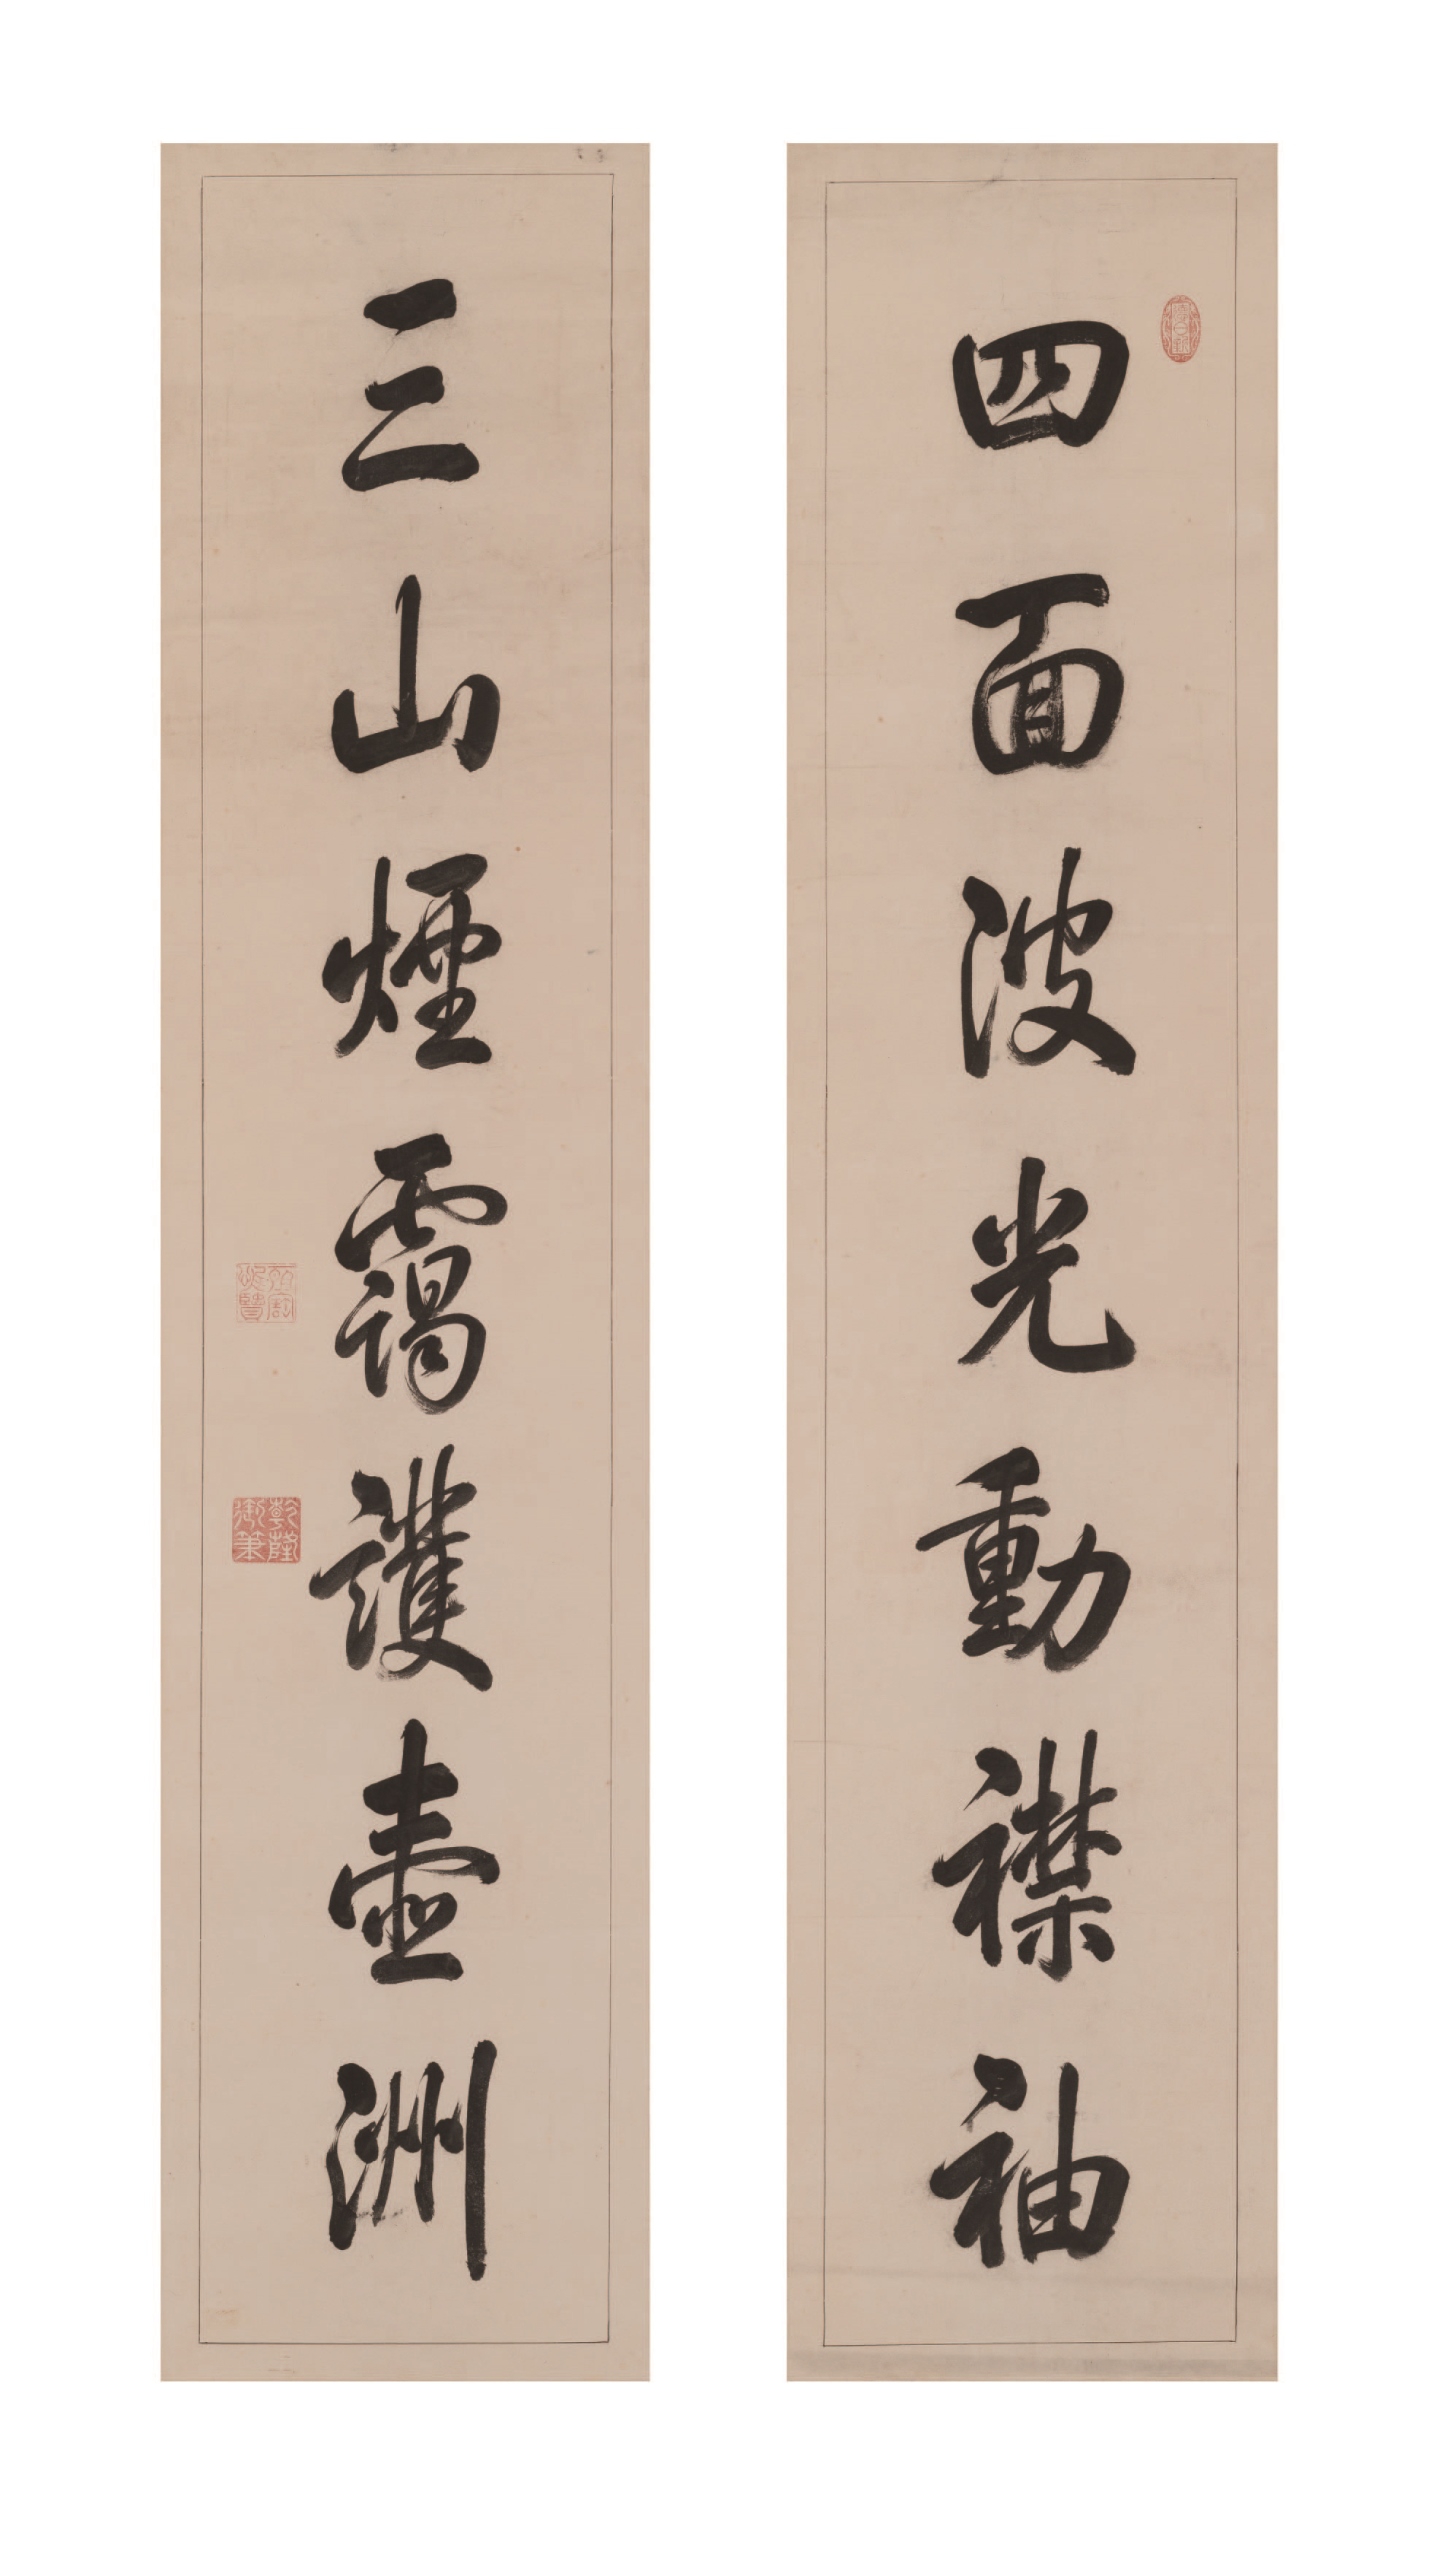 四面波光動襟袖
三山煙靄護壺洲
乾隆
御筆